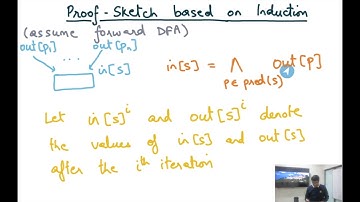 Proof-Sketch based on Induction
(assume forward DFA)
out[p₁] out[pₙ]
...
in[s]
in[s] = ∧ out[p]
p ∈ pred(s)
Let in[s]ⁱ and out[s]ⁱ denote
the values of in[s] and out[s]
after the iᵗʰ iteration